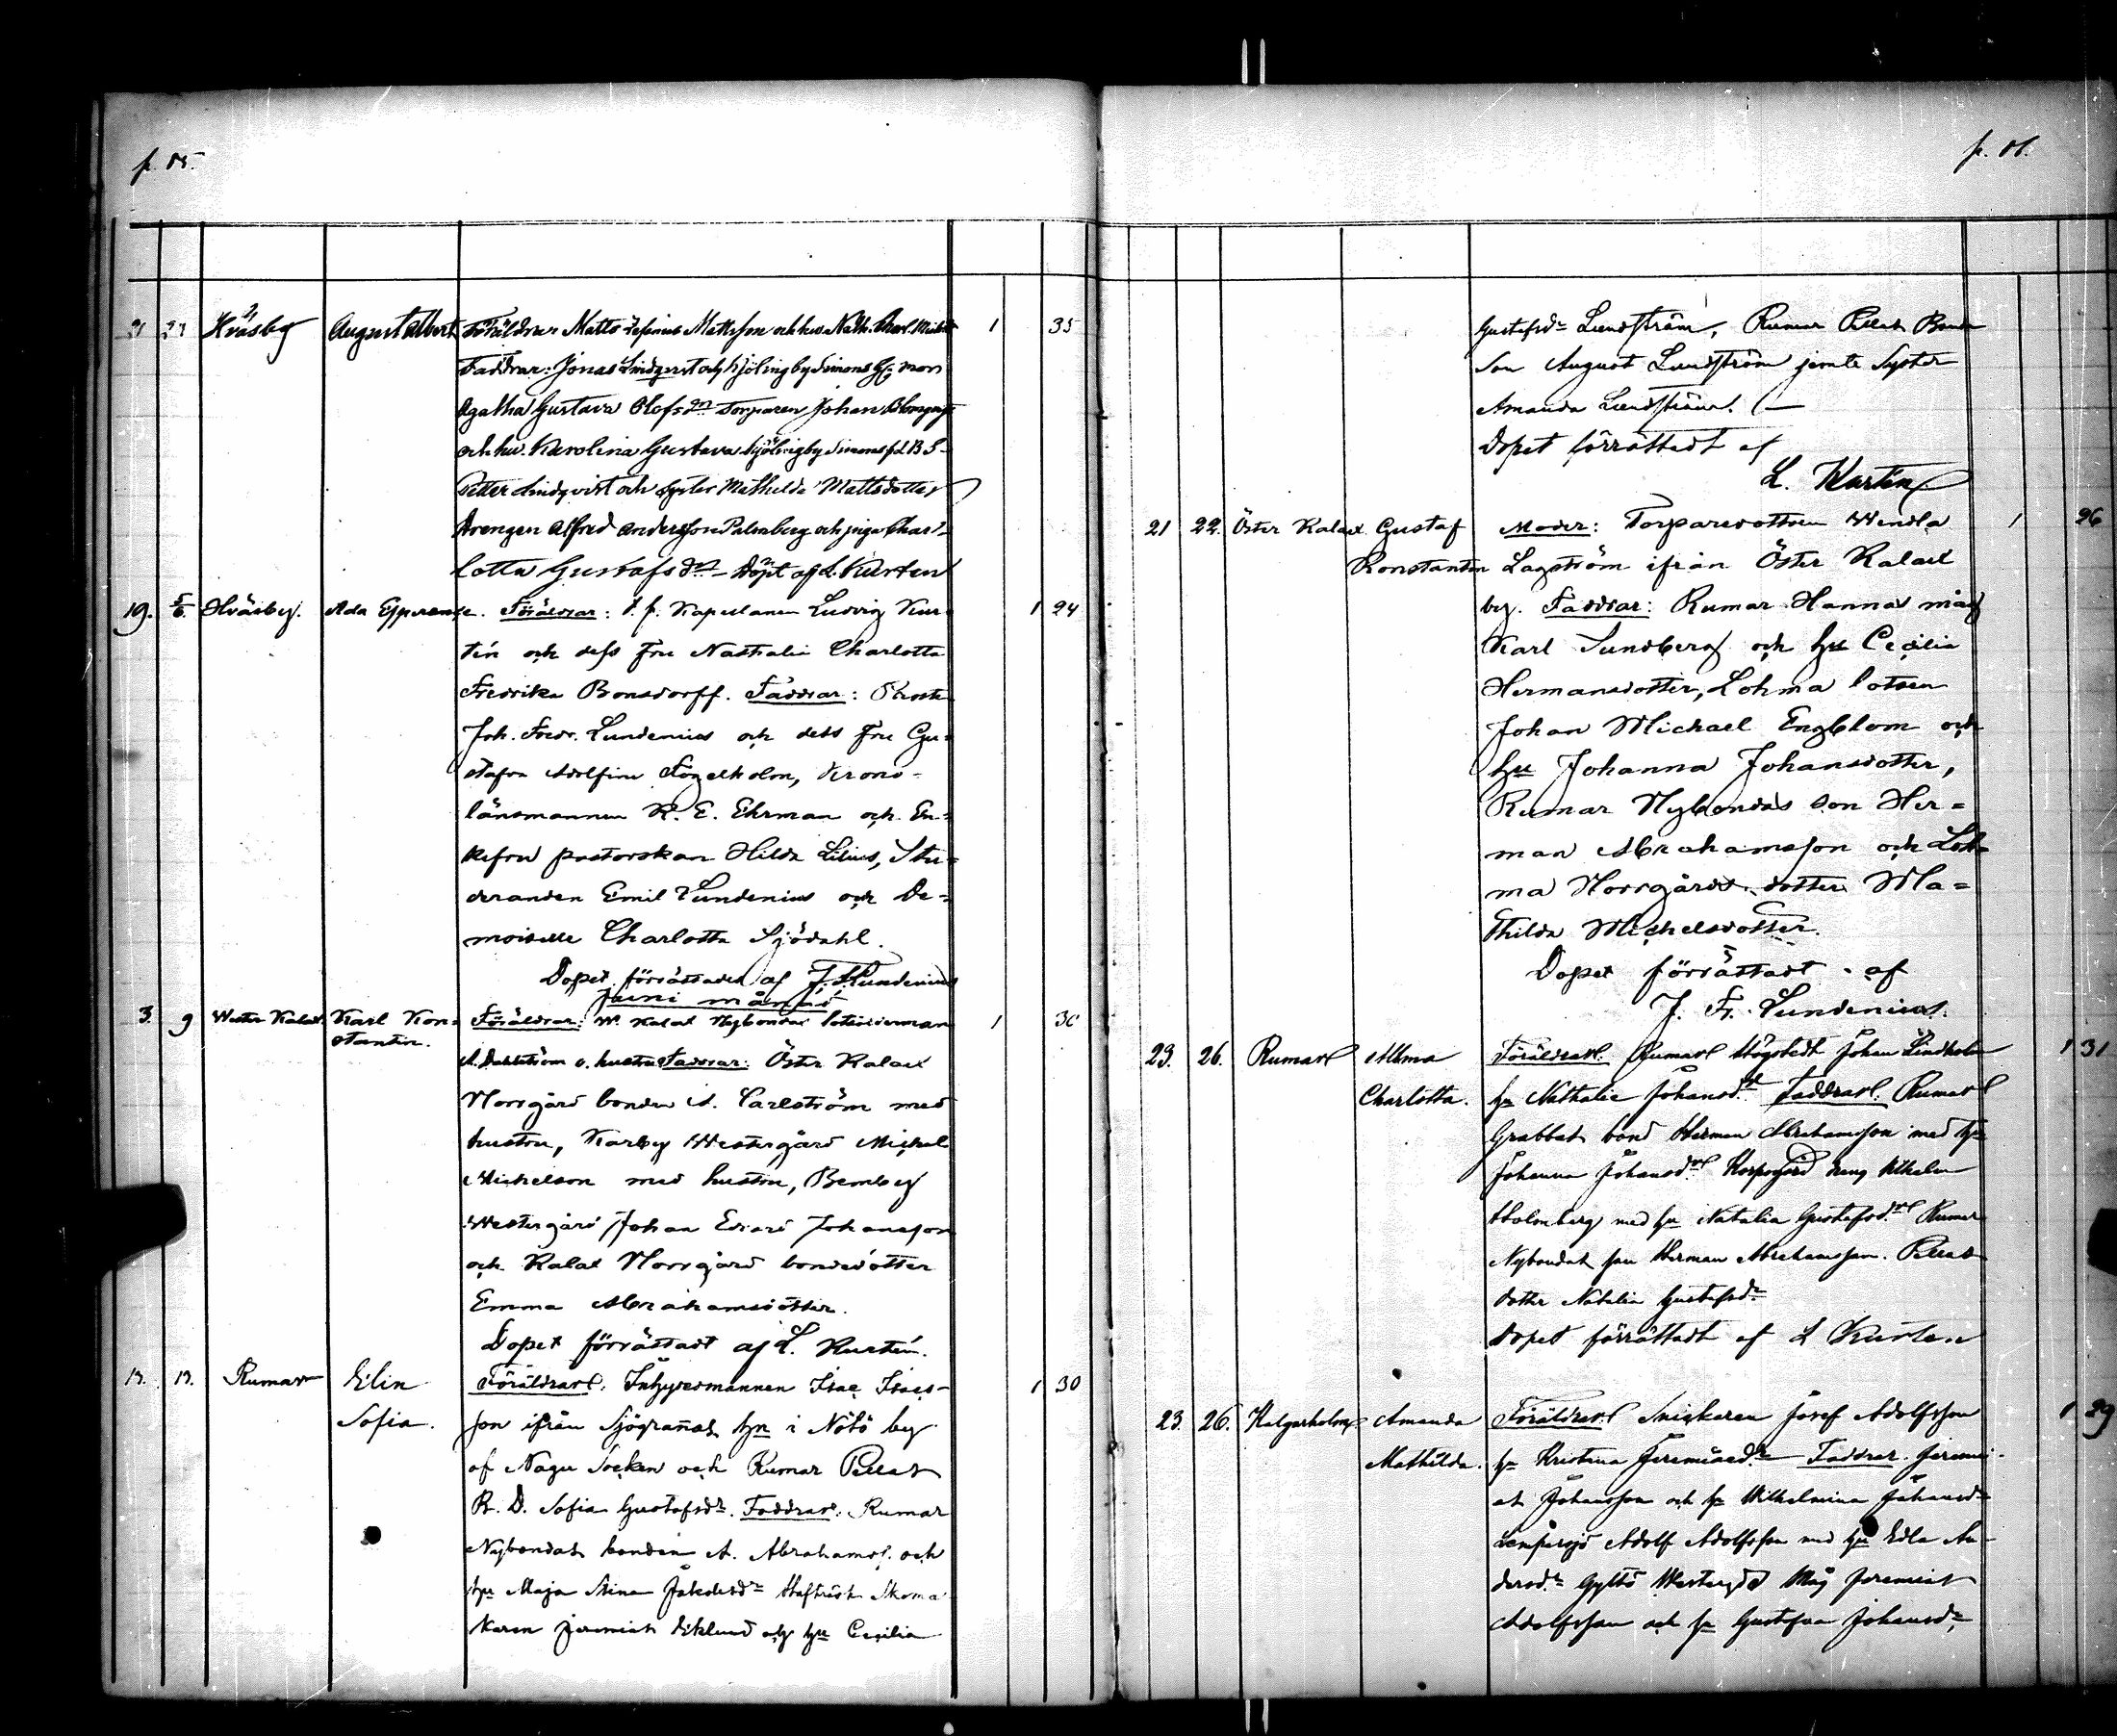 p. 15.
21 23 Hväsby August Albert Föräldrar Matts Josefinus Mattsson och hu Nath. Charl. 1 35
Faddrar: Jonas Lindqvist och Kjölingby Simons
Agatha Gustava Olofsdn Torparen Johan Blomqvist
och hu. Karolina Gustava Kjölingby Simons BS
Petter Lindqvist och Syster Mathilda Mattsdotter
Drengen Alfred Andersson Palmberg och piga Char-
lotta Gustafsdr - Döpt af L. Kurtén
19. 5/6. Hväsby. Ada Esperance. Föräldrar: V. p. Kapellanen Ludvig Kur- 1 24
tén och dess Fru Nathalia Charlotta
Fredrika Bonsdorff. Faddrar: Prosten
Joh. Fredr. Lundenius och dess Fru Gu-
stafva Adolfina Fogelholm, Krono-
länsmannen K. E. Ehrman och En-
kefru pastorskan Hilda Lilius, Stu-
deranden Emil Lundenius och De-
moiselle Charlotta Sjödahl.
Dopet förrättades af J. F. Lundenius
Juni månad
3. 9 Wester Kalax Karl Kon- Föräldrar: W. Kalax Nybondas lotsålderman 1 30
stantin.
A. Dahlström o. hustru Faddrar: Öster Kalax
Norrgård bonden A. Carlström med
hustru, Karby Westergård Michel
Michelson med hustru, Bemby
Westergård Johan Edvard Johansson
och Kalax Norrgård bondedotter
Emma Abrahamsdotter.
Dopet förrättadt af L. Kurtén.
13. 13. Rumar Elin Föräldrar. Inhysesmannen Isac Isacs- 1 30
Sofia. son ifrån Sjögrannas hn i Nötö by
af Nagu Socken och Rumar Pellas
B. D. Sofia Gustafsdr. Faddrar: Rumar
Nybondas bonden A. Abrahams. och
hu Maja Stina Jakobsdr Skoma-
karen Jeremias Eklund och hu Cecilia
p. 16.
Gustafsdr Lundström, Rumar Pellas Bonde
Son August Lundström jemte Syster
Amanda Lundström.
Dopet förrättadt af
L. Kurtén
21 22. Öster Kalax Gustaf Moder: Torparedottren Wendla 1 26
Konstantin Lagström ifrån Öster Kalax
by. Faddrar: Rumar Hannas måg
Karl Sundberg och hu Cecilia
Hermansdotter, Lohma lotsen
Johan Michael Engblom och
hu Johanna Johansdotter,
Rumar Nybondas son Her-
man Abrahamsson och Loh-
ma Norrgårds dotter Ma-
thilda Michelsdotter.
Dopet förrättadt af
J. Fr. Lundenius.
23. 26. Rumar Alma Föräldrar. Rumar Högstedt Johan Lindholm 1 31
Charlotta. hu Nathalie Johansdr. Faddrar. Rumar
Grabbas bond Herman Abrahamsson med hu
Johanna Johansdr Korpogård dreng Wilhelm
Holmberg med hu Natalia Gustafsdr Rumar
Nybondas son Herman Abrahamsson. Pellas
dotter Natalia Gustafsdr
Dopet förrättadt af L Kurtén
23. 26. Kalgarholm Amanda Föräldrar Snickaren Josef Adolfsson 1 29
Mathilda. hu Kristina Jeremiaedr Faddrar. Jeremi-
as Johansson och hu Wilhelmina Johansdr
Adolf Adolfsson med hu Edla An-
dersdr Gyltö Westergd Måg Jeremias
Adolfsson och hu Gustafva Johansdr,